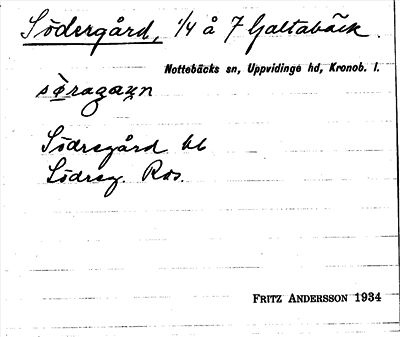 Södergård, 1/4 å 7 Galtabäck.
Nottebäcks sn, Uppvidinge hd, Kronob. l.
sø̀ragaʐn
Södregård bb
Södreg. Ros.
FRITZ ANDERSSON 1934